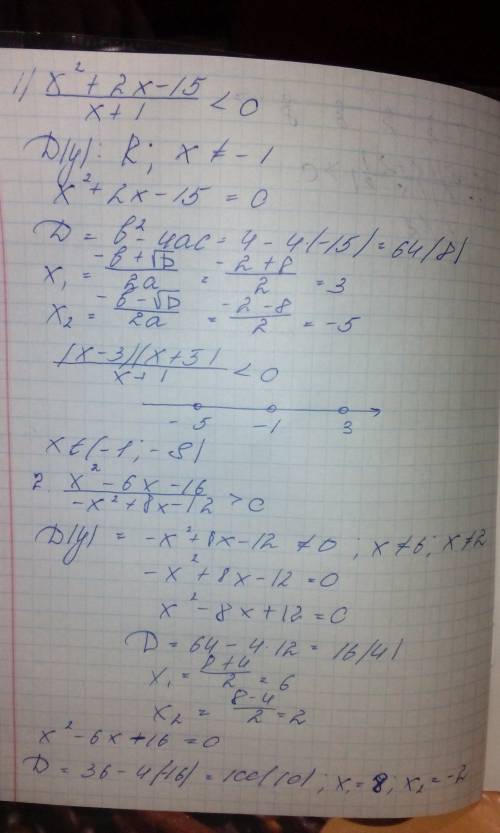 1) x² + 2x - 15 / x + 1 < 0
D(y): R; x ≠ -1
x² + 2x - 15 = 0
D = b² - 4ac = 4 - 4(-15) = 64(8)
x₁ = -b + √D / 2a = -2 + 8 / 2 = 3
x₂ = -b - √D / 2a = -2 - 8 / 2 = -5
(x - 3)(x + 5) / x + 1 < 0
-5 -1 3
x ∈ (-1; -5)
2. x² - 6x - 16 / -x² + 8x - 12 > 0
D(y) = -x² + 8x - 12 ≠ 0; x ≠ 6; x ≠ 2
-x² + 8x - 12 = 0
x² - 8x + 12 = 0
D = 64 - 4·12 = 16(4)
x₁ = 8 + 4 / 2 = 6
x₂ = 8 - 4 / 2 = 2
x² - 6x - 16 = 0
D = 36 - 4(-16) = 100(10); x₁ = 8; x₂ = -2